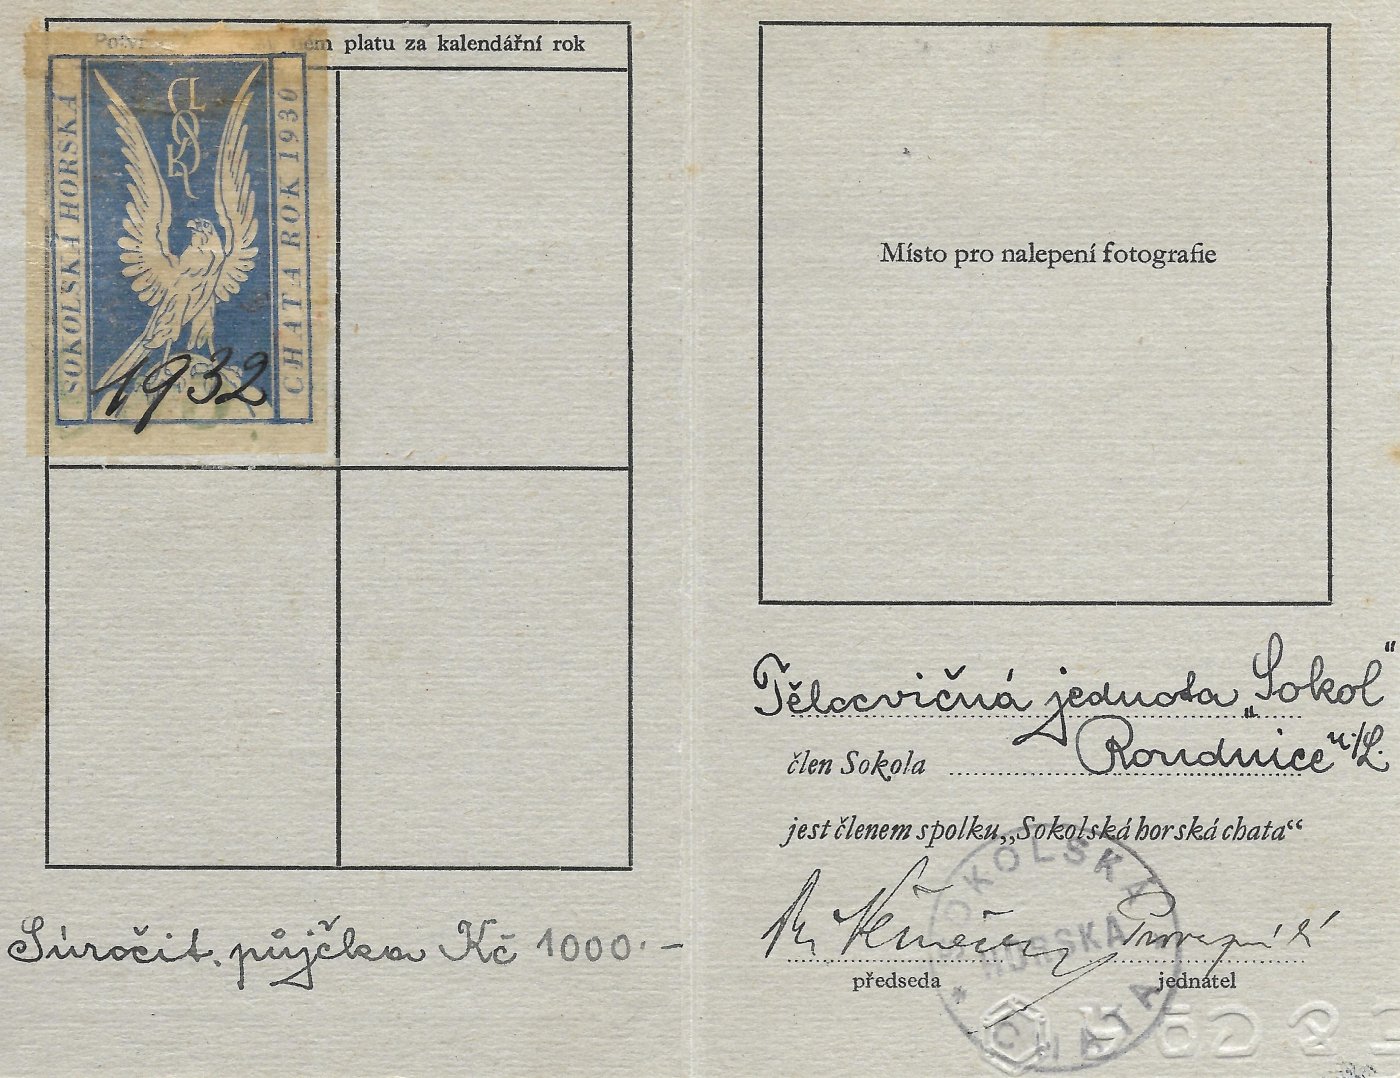 ném platu za kalendářní rok
SOKOLSKÁ HORSKÁ
CHATA ROK 1930
1932
Súročit. půjčka Kč 1000.-
Místo pro nalepení fotografie
Tělocvičná jednota „Sokol“
člen Sokola Roudnice n./L.
jest členem spolku „Sokolská horská chata“
předseda jednatel
SOKOLSKÁ
HORSKÁ
* CHATA